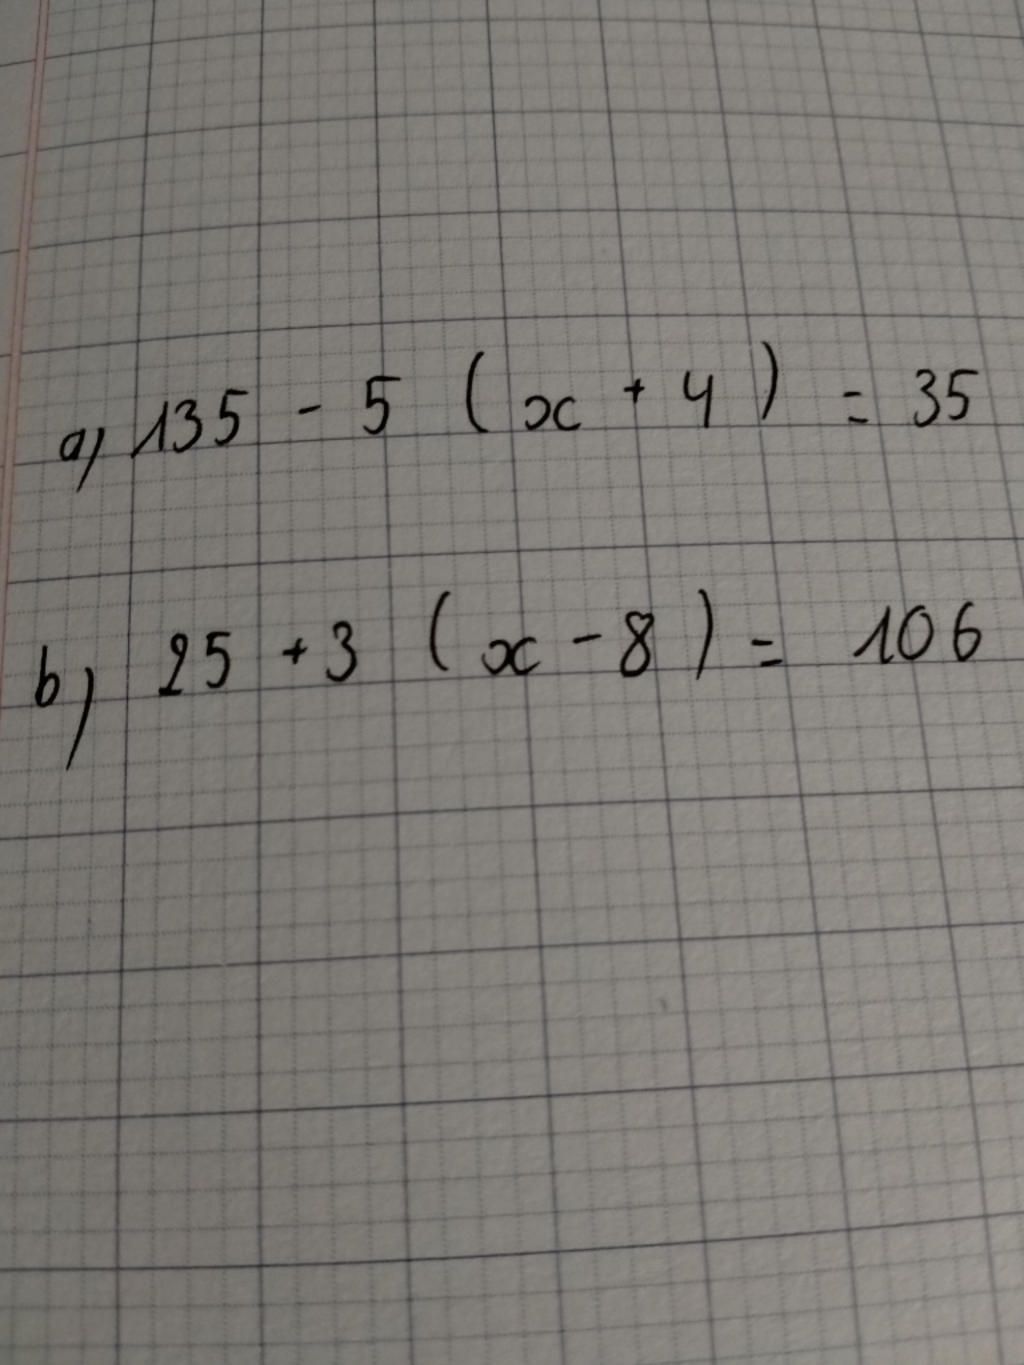 a) 135 - 5 ( x + 4 ) = 35
b) 25 + 3 ( x - 8 ) = 106